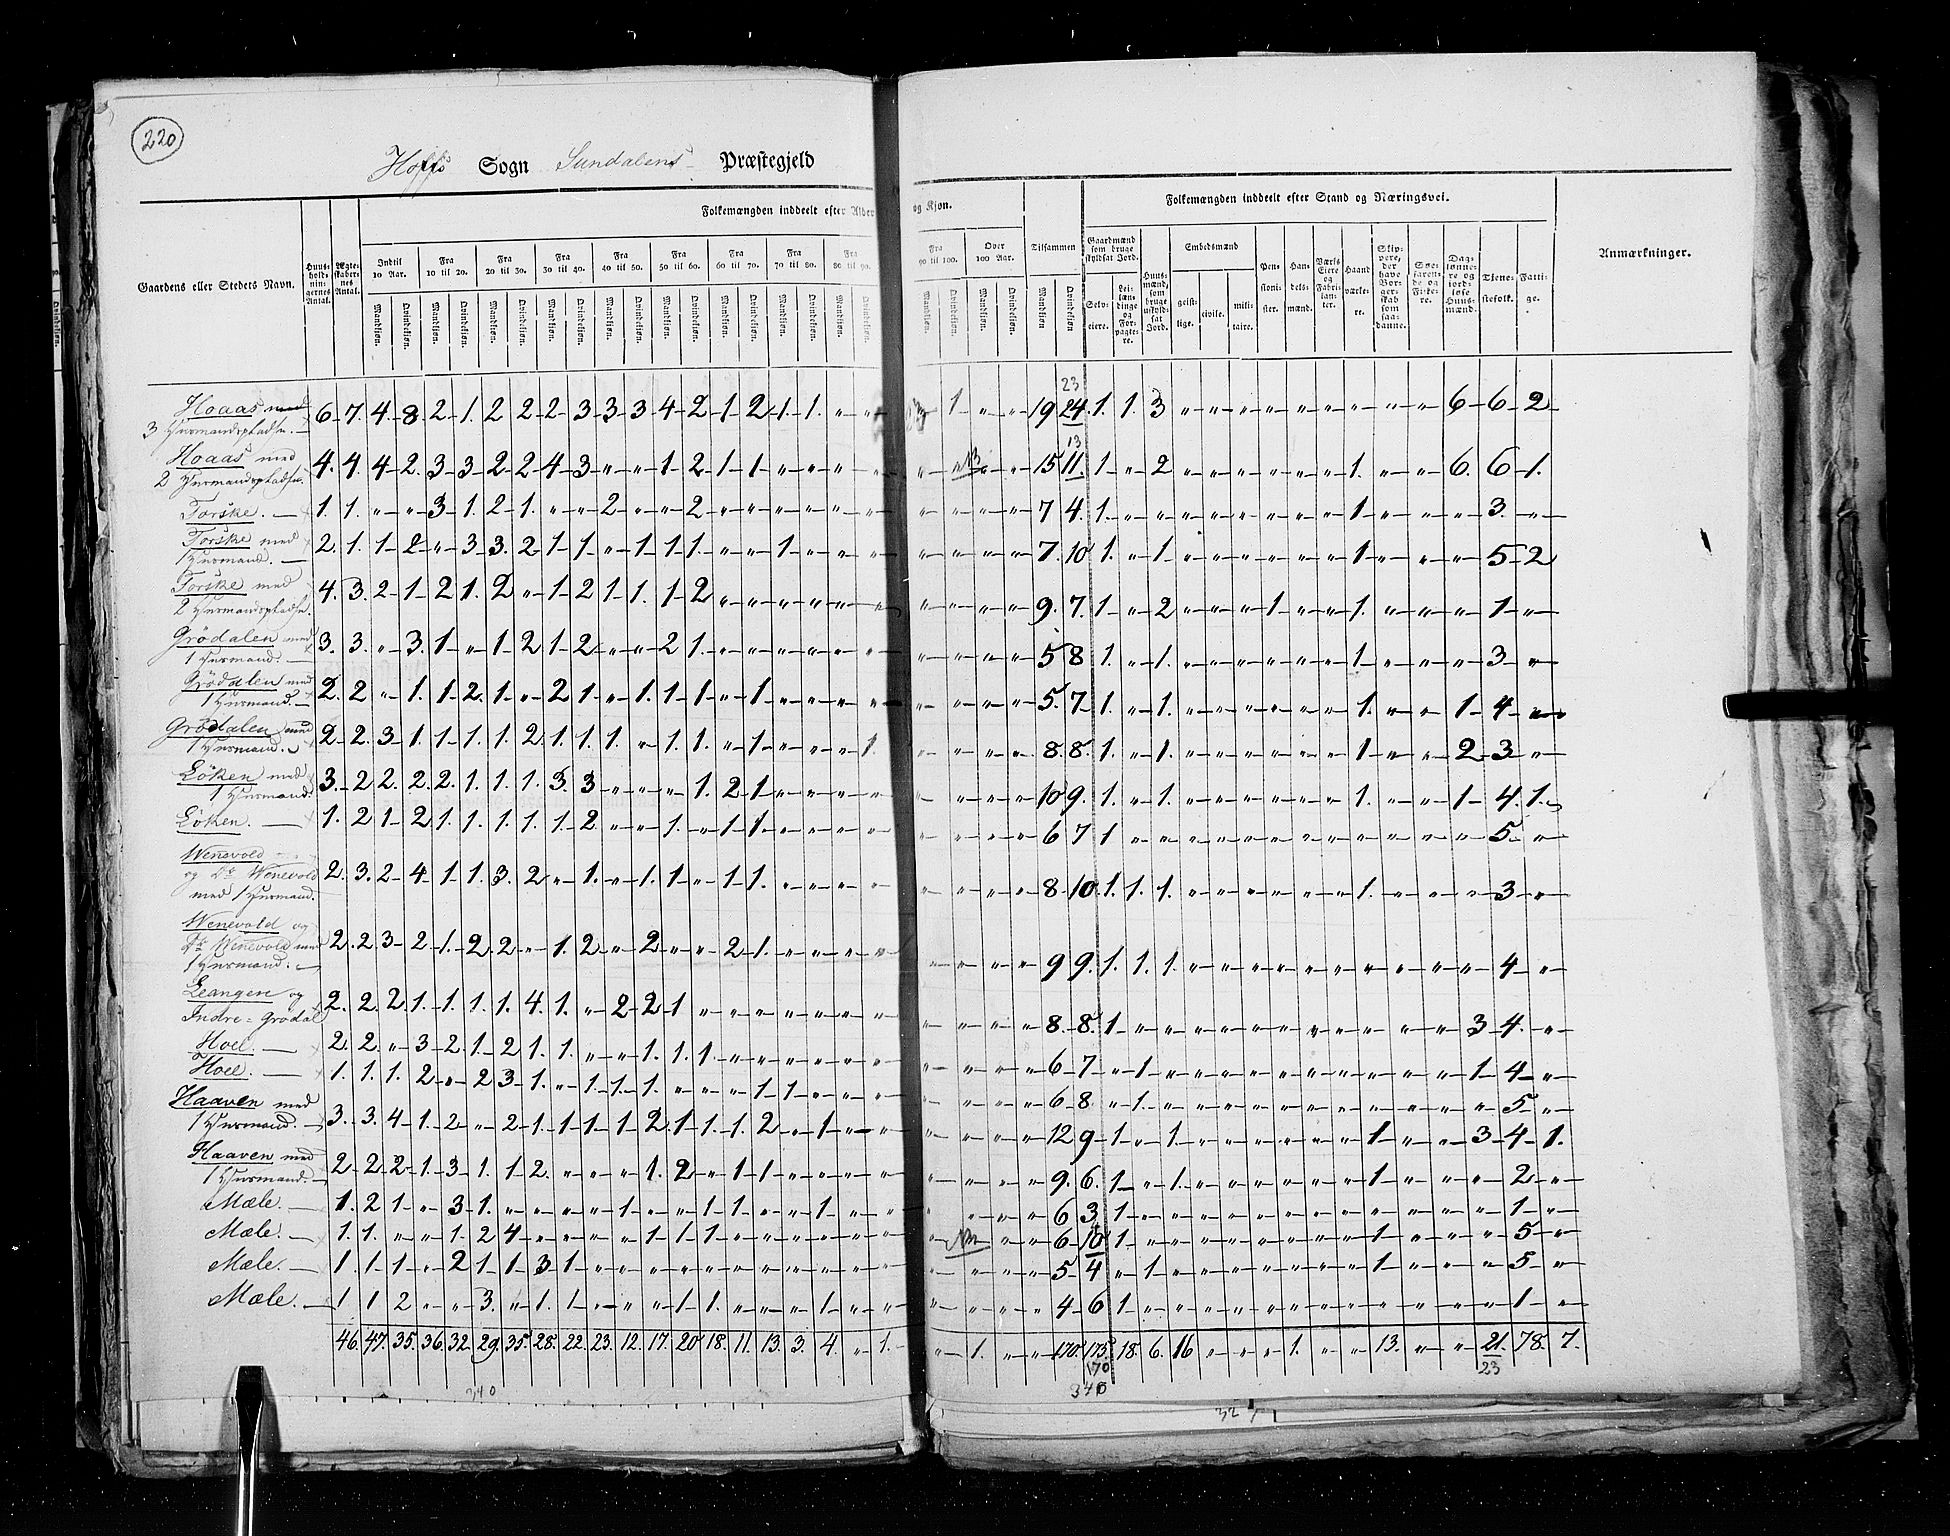 220
Hoffs Sogn Sundalens Præstegjeld
Gaardens eller Stedets Navn.
Huus-holdnin-gernes Antal.
Ægte-skaber-nes Antal.
Folkemængden inddeelt efter Alder og Kjøn.
Indtil 10 Aar. Fra 10 til 20. Fra 20 til 30. Fra 30 til 40. Fra 40 til 50. Fra 50 til 60. Fra 60 til 70. Fra 70 til 80. Fra 80 til 90. Fra 90 til 100. Over 100 Aar. Tilsammen
Mandkjøn. Qvindekjøn.
Folkemængden inddeelt efter Stand og Næringsvei.
Gaardmænd som bruge skyldsat Jord.
Selv-eiere. Lei-læn-dinge og For-pagte-re.
Huus-mænd, som bruge uskyld-sat Jord.
Embedsmænd
geist-lige. civile. mili-taire.
Pen-sioni-ster. Han-dels-mænd. Værks Eiere og Fabri-kan-ter. Haand værke-re. Skip-pere, der have Bor-ger-skab som saa-danne. Søe-faren-de og Fi-ke-re. Dag-lønne-re og jord-løse Huus-mænd. Tiene-stefolk. Fatti-ge.
Anmærkninger.
23
Hoaas med 6 7. 4 8 2 1. 2 2 2 3 3 3 4 2 1 2 1 1. " " 1 " " 19 24 1. 1. 3 " " " " " " " " " 6 6 2
3 Huusmandspladse.
13
Hoaas med 4. 4. 4 2. 3 3 2 2 4 3 " " 1 2 1 1. " " " " " 15 11. 1 " 2 " " " " " " 1. " " 6. 6 1.
2 Huusmandspladse.
Forske. 1. 1. " " 3 1. 2 1. " " 2 " " 2 " " " " " " " " " " 7 4. 1. " " " " " " " " 1 " " " 3. "
Forske med 2. 1. 1 2 " 3 3. 2 1 1 " 1 1 1. " " 1 " " " " " " " 7. 10 1. " 1 " " " " " " 1 " " " 5 2
1 Huusmand.
Forske med 4. 3. 2 1 2 1. 2 " 1 2 1 1. 1 2 " " " " " " " " " " 9. 7. 1 " 2 " " " 1 " " 1. " " " 1 "
2 Huusmandspladse.
Grödalen med 3. 3. " 3. 1 " 1 2 1 2 " " 2 1. " " " " " " " " " " 5 8 1. " 1. " " " " " " 1 " " " 3 "
1 Huusmand.
Grödalen med 2. 2 " 1. 1 2. 1. " 2 1 " 1. 1 1 " 1 " " " " " " " " 5. 7 1. " 1. " " " " " " 1. " " 1 4 "
1 Huusmand.
Grödalen med 2 2. 3 1. 1 1. 1. 2. 1. 1. 1. " 1. 1. " 1 " " " 1. " " " " 8. 8. 1. " 1. " " " " " " 1 " " 2 3 "
1 Huusmand.
Löken med 3. 2 2. 2. 2. 1. 1. 1. 3. 3 " " " 1. 2 1 " " " " " " " " 10 9. 1. " 1. " " " " " " 1. " " 1 4. 1.
1 Huusmand.
Löken. 1. 2 1 2 1. 1. 1. 1. 1. 2 " " 1. " 1 1. " " " " " " " " 6 7 1 " " " " " " " " " " " " 5. "
Wenevold
og Do Wenevold 2. 3. 2 4 1 1. 3. 2 " 1. " 1. 1 " 1 1. " " " " " " " " 8 10. 1. 1. 1. " " " " " " 1. " " " 3 "
med 1 Huusmand.
Wenevold og
Do Wenevold med 2. 2 3 2 1. 2. 2 " 1. 2 " 2 " " 2 1. " " " " " " " " 9 9. 1. 1. 1. " " " " " " " " " " 4 "
1 Huusmand.
Leangen og 2. 2. 2. 1. 1. 1. 1. 4. 1. " 2 2 1 " " " " " " " " " " " 8. 8. 1 " " " " " " " " " " " 3 4. "
Indre-Grödal
Hoel. 2. 2. " 3 2. 1. 2 1. 1. " " 1. 1. 1. " " " " " " " " " " 6 7 " 1 " " " " " " " " " " 1 4 "
Hoel. 1. 1. 1. 2 " 2 3. 1. " 1. 1. 1. " " " 1 1. " " " " " " " 6 8. " 1. " " " " " " " " " " " 5 "
Haaven med 3. 3. 4 1. 2 " 2 1. 1 1 1 2 1 1. 1. 2 " 1 " " " " " " 12 9 1 " 1 " " " " " " 1 " " 3 4 1.
1 Huusmand.
Haaven med 2 2. 2 1. 3 1. 1 2. " " " 1. 2 " 1 1. " " " " " " " " 9. 6. 1 " 1. " " " " " " 1 " " " 2 "
1 Huusmand.
Mæle. 1. 2 1 " 3 1. " " " " 1 " " 1 1 " " 1 " " " " " " 6 3 1 " " " " " " " " " " " " 1 "
Mæle. 1. 1. " " 1. 2 4 " " " " 1 1 1 " " " " " " " " " 6 10 1 " " " " " " " " 1 " " " 5 "
Mæle. 1. 1 1 " 2 1. 1 3 1 " " " " " " " " " " " " " " " 5 4 " 1 " " " " " " " 1 " " " 5 "
Mæle. 1 1 2 " " 3. " 1. 1 " " " 1 1. " " " 1 " " " " " " 4 6 1 " " " " " " " " " " " " 1 "
46. 47. 35. 36. 32. 29. 35. 28. 22. 23. 12. 17. 20. 18. 11. 13. 3. 4. " 1. " 1. " " 170. 175. 18. 6. 16 " " " 1. " " 13. " " 21. 78. 7.
170 23
340 340